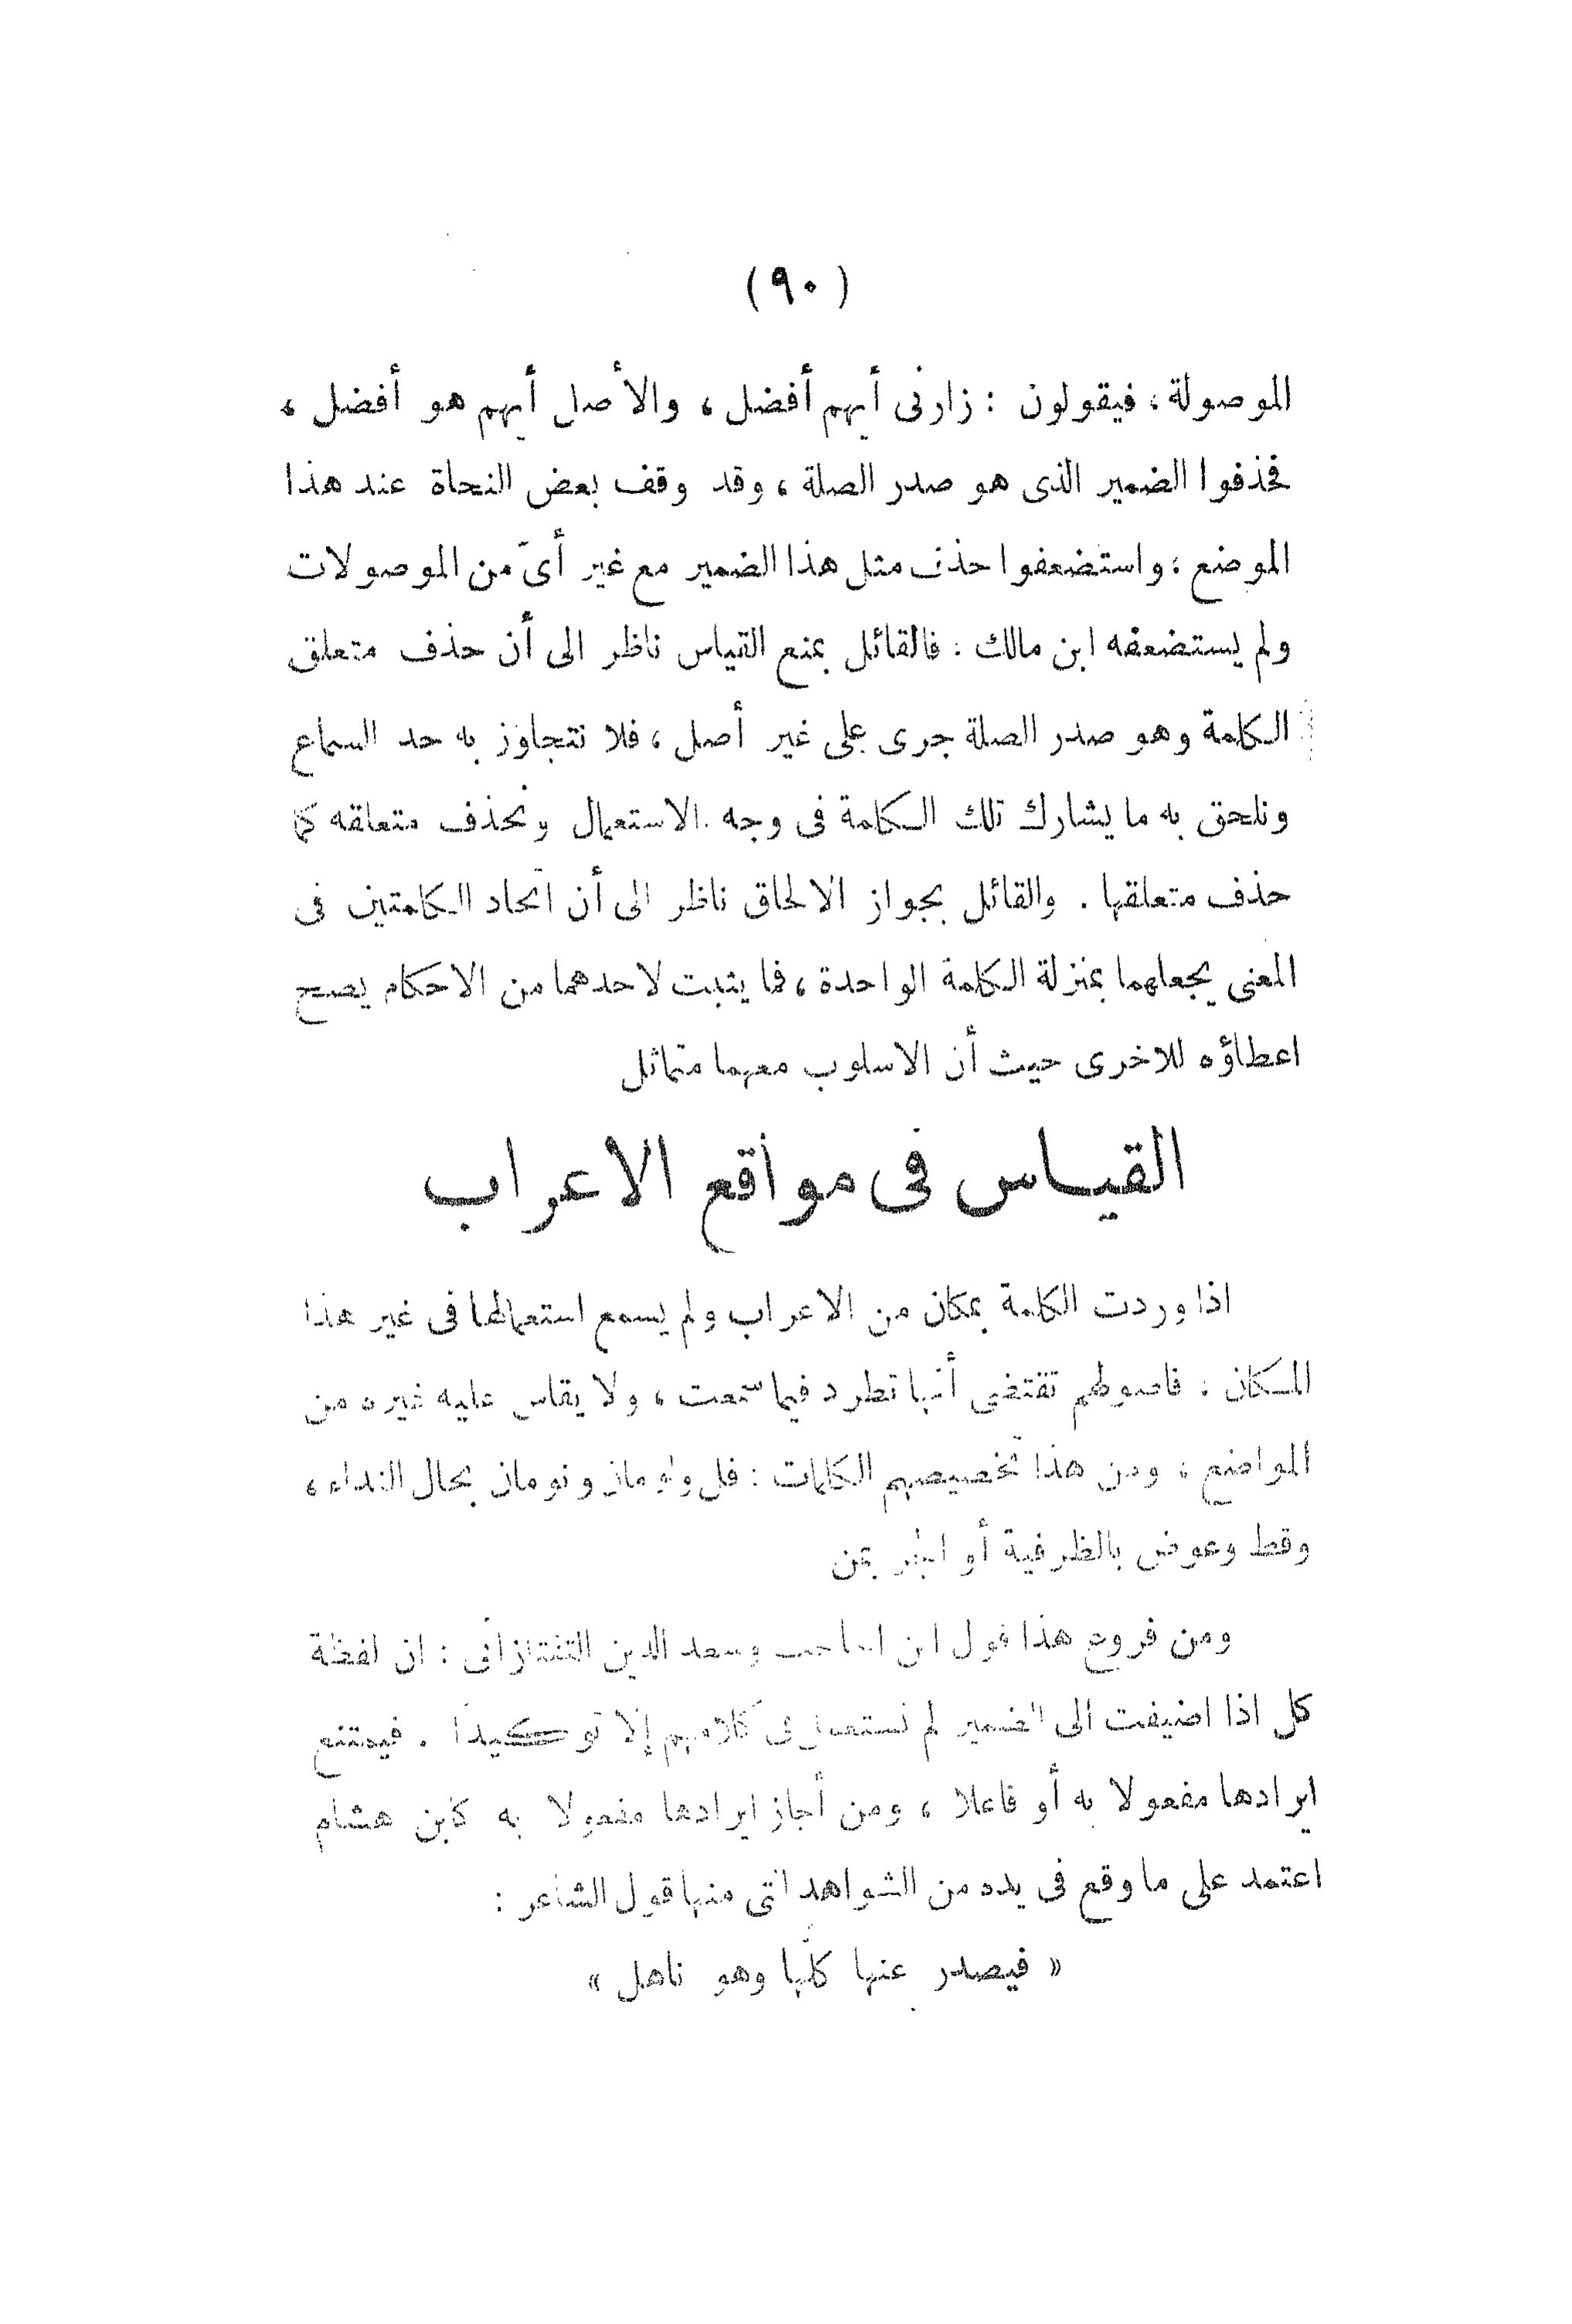 (٩٠)
الموصولة، فيقولون : زارنى أيهم أفضل، والأصل أيهم هو أفضل،
فحذفوا الضمير الذى هو صدر الصلة، وقد وقف بعض النحاة عند هذا
الموضع، واستضعفوا حذف مثل هذا الضمير مع غير أىّ من الموصولات
ولم يستضعفه ابن مالك . فالقائل بمنع القياس ناظر الى أن حذف متعلق
الكلمة وهو صدر الصلة جرى على غير أصل، فلا نتجاوز به حد السماع
ونلحق به ما يشارك تلك الكلمة فى وجه الاستعمال ونحذف متعلقه كما
حذف متعلقها . والقائل بجواز الالحاق ناظر الى أن اتحاد الكلمتين فى
المعنى يجعلهما بمنزلة الكلمة الواحدة، فما يثبت لاحدهما من الاحكام يصح
اعطاؤه للاخرى حيث أن الاسلوب معهما متماثل
القياس فى مواقع الاعراب
اذا وردت الكلمة بمكان من الاعراب ولم يسمع استعمالها فى غير هذا
المكان، فاصولهم تقتضى أنها تطرد فيما سمعت، ولا يقاس عليه غيره من
المواضع، ومن هذا تخصيصهم الكلمات : فل ولومان ونومان بحال النداء،
وقط وعوض بالظرفية أو الجر بمن
ومن فروع هذا قول ابن الحاجب وسعد الدين التفتازانى : ان لفظة
كل اذا اضيفت الى الضمير لم تستعمل فى كلامهم إلا توكيدا . فيمتنع
ايرادها مفعولا به أو فاعلا، ومن أجاز ايرادها مفعولا به كابن هشام
اعتمد على ما وقع فى يده من الشواهد التى منها قول الشاعر :
« فيصدر عنها كلّها وهو ناهل »